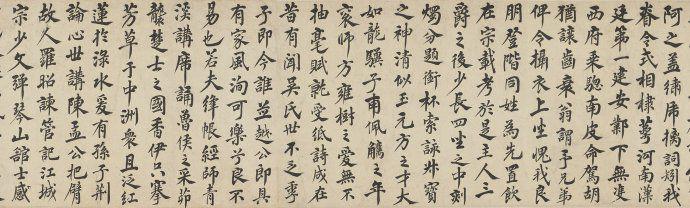 阿之蓋繡席摛詞矧我
眷令式相棣萼河南漢
廷第一建安鄴下無雙
西府乘驄南皮命駕胡
猶讓齒衰翁謂予兄弟
俾令攝衣上坐愧我良
朋登階同姓為先置飲
在宗載考於是主人三
爵之後少長四坐之中刻
燭分題銜杯索詠叔寶
之神清似玉元方之才大
如龍驥子甫佩觿之年
袞師方雍樹之愛無不
抽毫賦受紙詩成在
昔有聞吳氏世不乏季
子即今誰並越公即具
有家風洵可樂乎良不
易也若夫絳帳經師青
溪講席誦魯侯之采茆
襲楚士之國香伊只搴
芳草于中洲衆且泛紅
蓮於淥水爰有孫子荆
論心世講陳孟公把臂
故人羅昭諫管記江城
宗少文彈琴山館士感